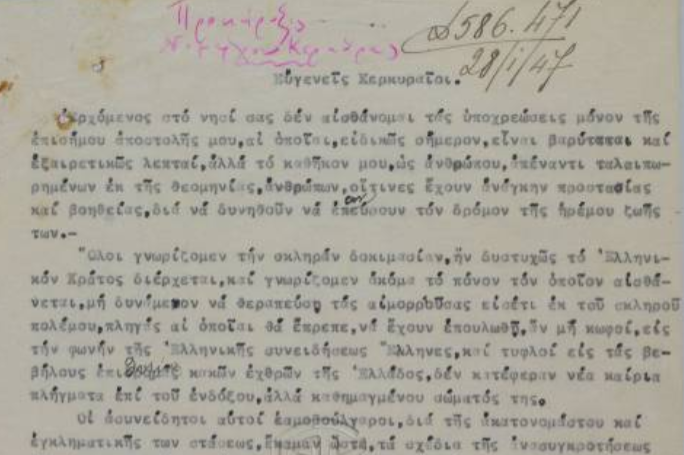 Προκήρυξις
Νομάρχου Κερκύρας
Δ586.471
28/1/47
Εὐγενεῖς Κερκυραῖοι.
Ἐρχόμενος στό νησί σας δέν αἰσθάνομαι τάς ὑποχρεώσεις μόνον τῆς
ἐπισήμου ἀποστολῆς μου,αἱ ὁποῖαι,εἰδικῶς σήμερον,εἶναι βαρύταται καί
ἐξαιρετικῶς λεπταί,ἀλλά τό καθῆκον μου,ὡς ἀνθρώπου,ἀπέναντι ταλαιπω-
ρημένων ἐκ τῆς θεομηνίας,ἀνθρώπων,οἵτινες ἔχουν ἀνάγκην προστασίας
καί βοηθείας,διά νά δυνηθοῦν νά τόν δρόμον τῆς ἠρέμου ζωῆς
των.-
Ὅλοι γνωρίζομεν τήν σκληράν δοκιμασίαν,ἥν δυστυχῶς τό Ἑλληνι-
κόν Κράτος διέρχεται,καί γνωρίζομεν ἀκόμα τό πόνον τόν ὁποῖον αἰσθά-
νεται,μή δυνάμενον νά θεραπεύσῃ τάς αἱμορρούσας εἰσέτι ἐκ τοῦ σκληροῦ
πολέμου,πληγάς αἱ ὁποῖαι θά ἔπρεπε,νά ἔχουν ἐπουλωθῇ,ἄν μή κωφοί,εἰς
τήν φωνήν τῆς Ἑλληνικῆς συνειδήσεως Ἕλληνες,καί τυφλοί εἰς τάς βε-
βήλους κακῶν ἐχθρῶν τῆς Ἑλλάδος,δέν κατέφεραν νέα καίρια
πλήγματα ἐπί τοῦ ἐνδόξου,ἀλλά καθημαγμένου σώματός της.
Οἱ ἀσυνείδητοι αὐτοί ἐαμοβούλγαροι,διά τῆς ἀκατονομάστου καί
ἐγκληματικῆς των στάσεως,ἔκαμαν ὥστε,τά σχέδια τῆς ἀνασυγκροτήσεως